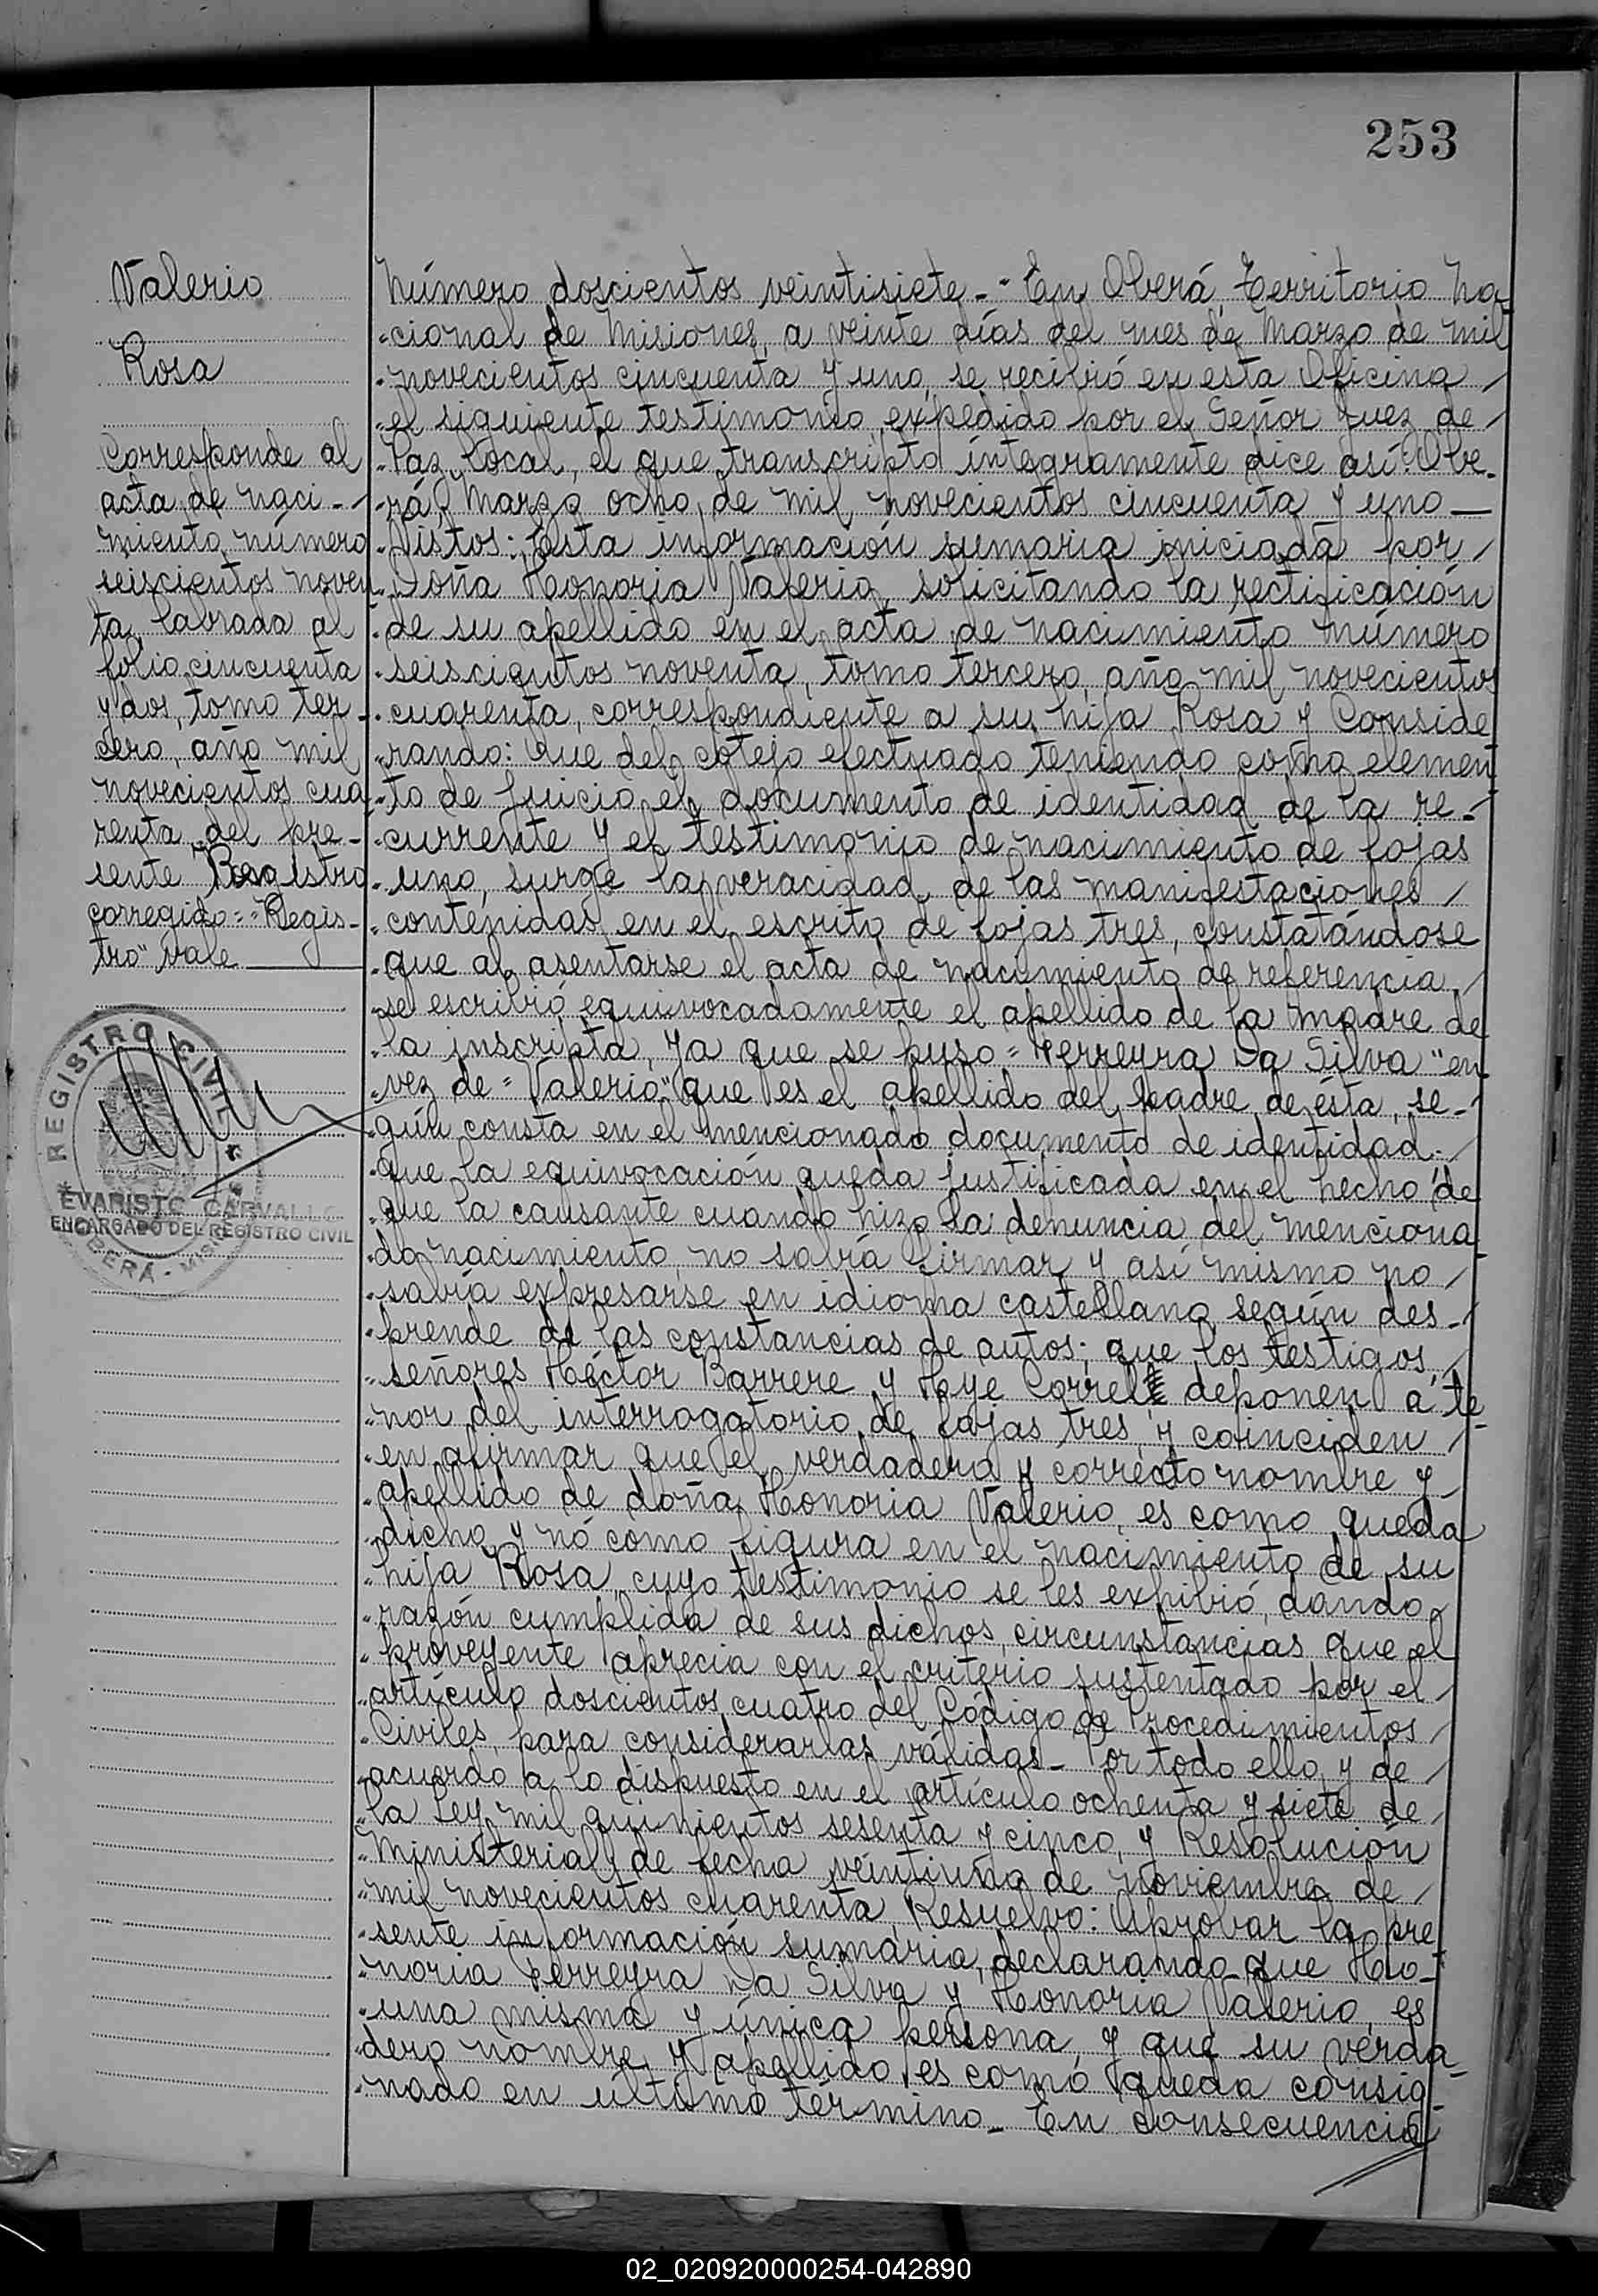 253
Valerio
Rosa
Corresponde al
acta de naci-
miento número
seiscientos noven
ta, labrada al
folio cincuenta
y dos, tomo ter-
cero, año mil
novecientos cua-
renta del pre-
sente Registro
corregido: "Regis-
tro" vale
REGISTRO CIVIL
EVARISTO CARVALLO
ENCARGADO DEL REGISTRO CIVIL
OBERA - MIS
Número doscientos veintisiete - En Oberá, Territorio Na-
cional de Misiones, a veinte días del mes de Marzo de mil
novecientos cincuenta y uno, se recibió en esta Oficina
el siguiente testimonio expedido por el Señor Juez de
Paz local, el que transcripto íntegramente dice así: Obe-
rá, Marzo ocho de mil novecientos cincuenta y uno
Vistos: Esta información sumaria iniciada por
Doña Honoria Valerio, solicitando la rectificación
de su apellido en el acta de nacimiento número
seiscientos noventa, tomo tercero, año mil novecientos
cuarenta, correspondiente a su hija Rosa y Conside
rando: Que del cotejo efectuado teniendo como elemen
to de juicio el documento de identidad de la re-
currente y el testimonio de nacimiento de fojas
uno, surge la veracidad de las manifestaciones
contenidas en el escrito de fojas tres, constatándose
que al asentarse el acta de nacimiento de referencia,
se escribió equivocadamente el apellido de la madre de
la inscripta, ya que se puso "Ferreyra Da Silva" en
vez de "Valerio" que es el apellido del padre de ésta, se-
gún consta en el mencionado documento de identidad.
que la equivocación queda justificada en el hecho de
que la causante cuando hizo la denuncia del menciona
do nacimiento, no sabía firmar y así mismo no
sabía expresarse en idioma castellano según des-
prende de las constancias de autos; que los testigos
señores Héctor Barrere y Heye Correl deponen a te
nor del interrogatorio de fojas tres, y coinciden
en afirmar que el verdadero y correcto nombre y
apellido de doña Honoria Valerio, es como queda
dicho y nó como figura en el nacimiento de su
hija Rosa, cuyo testimonio se les exhibió, dando
razón cumplida de sus dichos, circunstancias que el
proveyente aprecia con el criterio sustentado por el
artículo doscientos cuatro del Código de Procedimientos
Civiles, para considerarlas válidas - Por todo ello, y de
acuerdo a lo dispuesto en el artículo ochenta y siete de
la Ley mil quinientos sesenta y cinco, y Resolución
Ministerial de fecha veintiuno de noviembre de
mil novecientos cuarenta, Resuelvo: Aprobar la pre
sente información sumaria, declarando que Ho-
noria Ferreyra Da Silva y Honoria Valerio, es
una misma y única persona, y que su verda-
dero nombre y apellido es como queda consig-
nado en último término - En consecuencia
02_020920000254-042890